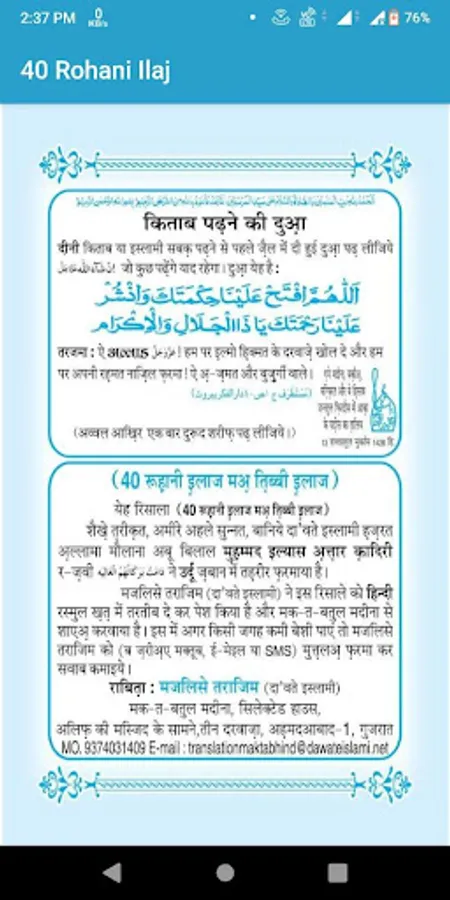 2:37 PM 0 KB/s 76%
40 Rohani Ilaj
किताब पढ़ने की दुआ
दीनी किताब या इस्लामी सबक़ पढ़ने से पहले ज़ैल में दी हुई दुआ पढ़ लीजिये
जो कुछ पढ़ेंगे याद रहेगा। दुआ येह है :
اَللّٰهُمَّ افْتَحْ عَلَيْنَا حِكْمَتَكَ وَانْشُرْ
عَلَيْنَا رَحْمَتَكَ يَا ذَا الْجَلَالِ وَالْاِكْرَام
तरजमा : ऐ عَزَّوَجَلَّ ! हम पर इल्मो हिक्मत के दरवाज़े खोल दे और हम
पर अपनी रहमत नाज़िल फ़रमा ! ऐ अ़-ज़मत और बुज़ुर्गी वाले।
(अव्वल आख़िर एक बार दुरूद शरीफ़ पढ़ लीजिये।)
(40 रूह़ानी इ़लाज मअ़ त़िब्बी इ़लाज)
येह रिसाला (40 रूह़ानी इ़लाज मअ़ त़िब्बी इ़लाज)
शैख़े त़रीक़त, अमीरे अहले सुन्नत, बानिये दा'वते इस्लामी ह़ज़रत
अ़ल्लामा मौलाना अबू बिलाल मुह़म्मद इल्यास अ़त्तार क़ादिरी
र-ज़वी دَامَتْ بَرَكَاتُهُمُ الْعَالِيَه ने उर्दू ज़बान में तह़रीर फ़रमाया है।
मजलिसे तराजिम (दा'वते इस्लामी) ने इस रिसाले को हिन्दी
रस्मुल ख़त़ में तरतीब दे कर पेश किया है और मक-त-बतुल मदीना से
शाएअ़ करवाया है। इस में अगर किसी जगह कमी बेशी पाएं तो मजलिसे
तराजिम को (ब ज़रीअ़ए मक्तूब, ई-मेइल या SMS) मुत्तलअ़ फ़रमा कर
सवाब कमाइये।
राबिता : मजलिसे तराजिम (दा'वते इस्लामी)
मक-त-बतुल मदीना, सिलेक्टेड हाउस,
अलिफ़ की मस्जिद के सामने,तीन दरवाज़ा, अह़मदआबाद-1, गुजरात
MO. 9374031409 E-mail : translationmaktabhind@dawateislami.net